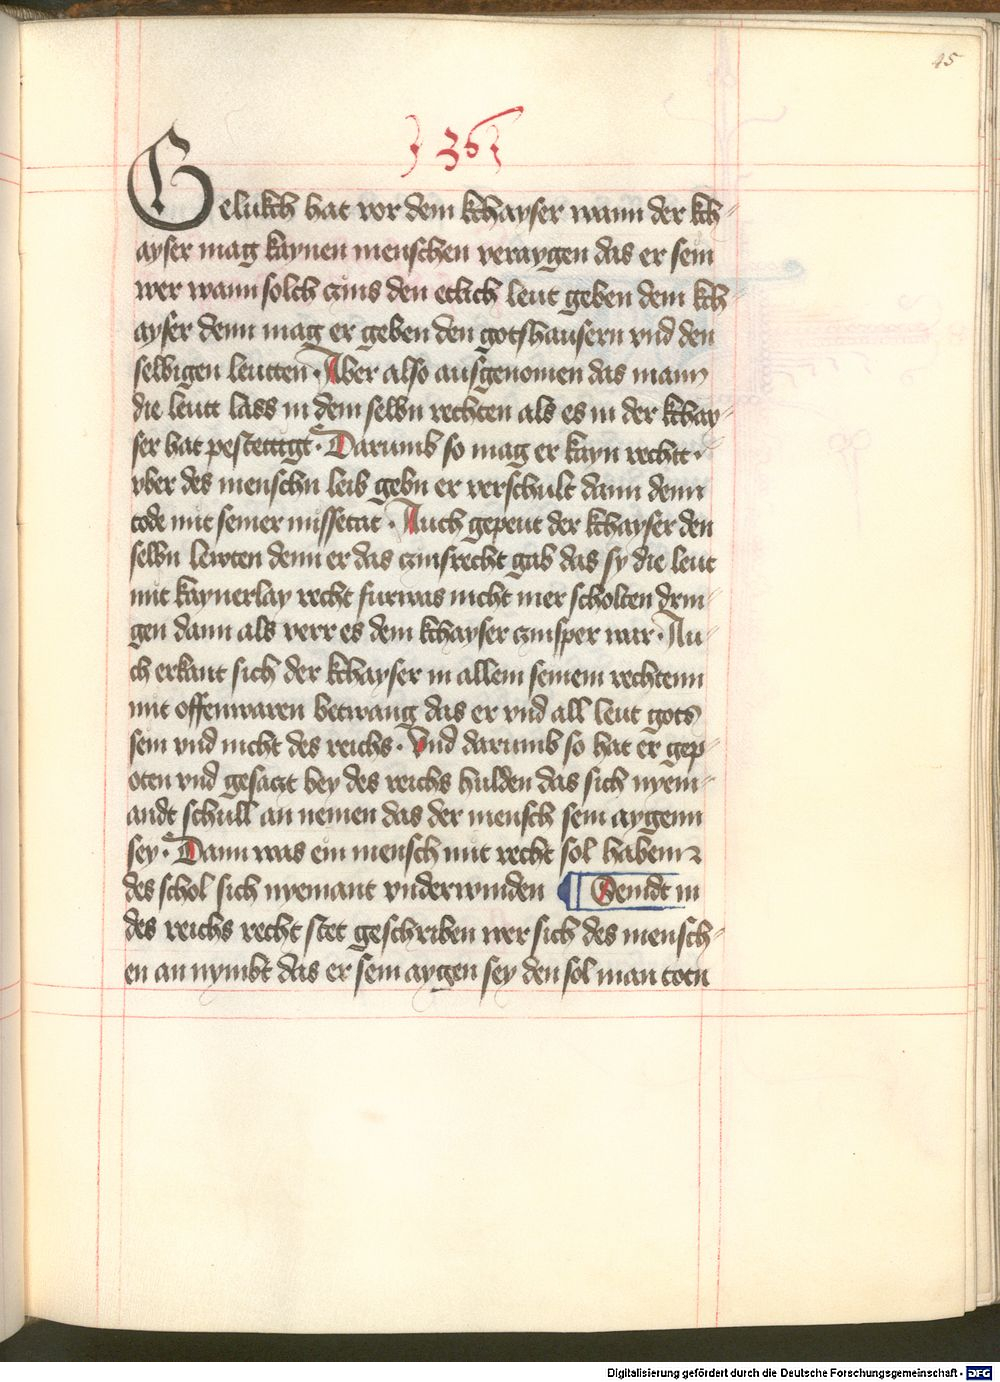 45
36
Gelukch hat vor dem kchayser wann der kch-
ayser mag kaynen menschen veraygen das er sein
wer wann solch czins den etlich leut geben dem kch-
ayser denn mag er geben den gotshausern vnd den
selbigen leutten · Aber also ausgenomen das mann
die leutt lass in dem selbn rechten als es in der kchay-
ser hat pestettigt · Darumb so mag er kayn rechtt ·
vber des menschn leib gebn er verschult dann denn
tode mit seiner missetat · Auch gepeut der kchayser den
selbn lewten denn er das czinsrecht gab das sy die leut
mit kaynerlay recht furwas nicht mer scholten drin-
gen dann als verr es dem kchayser czinsper war · Au-
ch erkant sich der kchayser in allem seinem rechtenn
mit offenwaren betwang das er vnd all leut gots
sein vnd nicht des reichs · Vnd darumb so hat er gep-
oten vnd gesaczt bey des reichs hulden das sich nyem-
andt schull an nemen das der mensch sein aygenn
sey · Dann was ein mensch mit recht sol habenn
des schol sich nyemant vnderwinden in
des reichs recht stet geschriben wer sich des mensch-
en an nymbt das er sein aygen sey den sol man totn
Digitalisierung gefördert durch die Deutsche Forschungsgemeinschaft - DFG